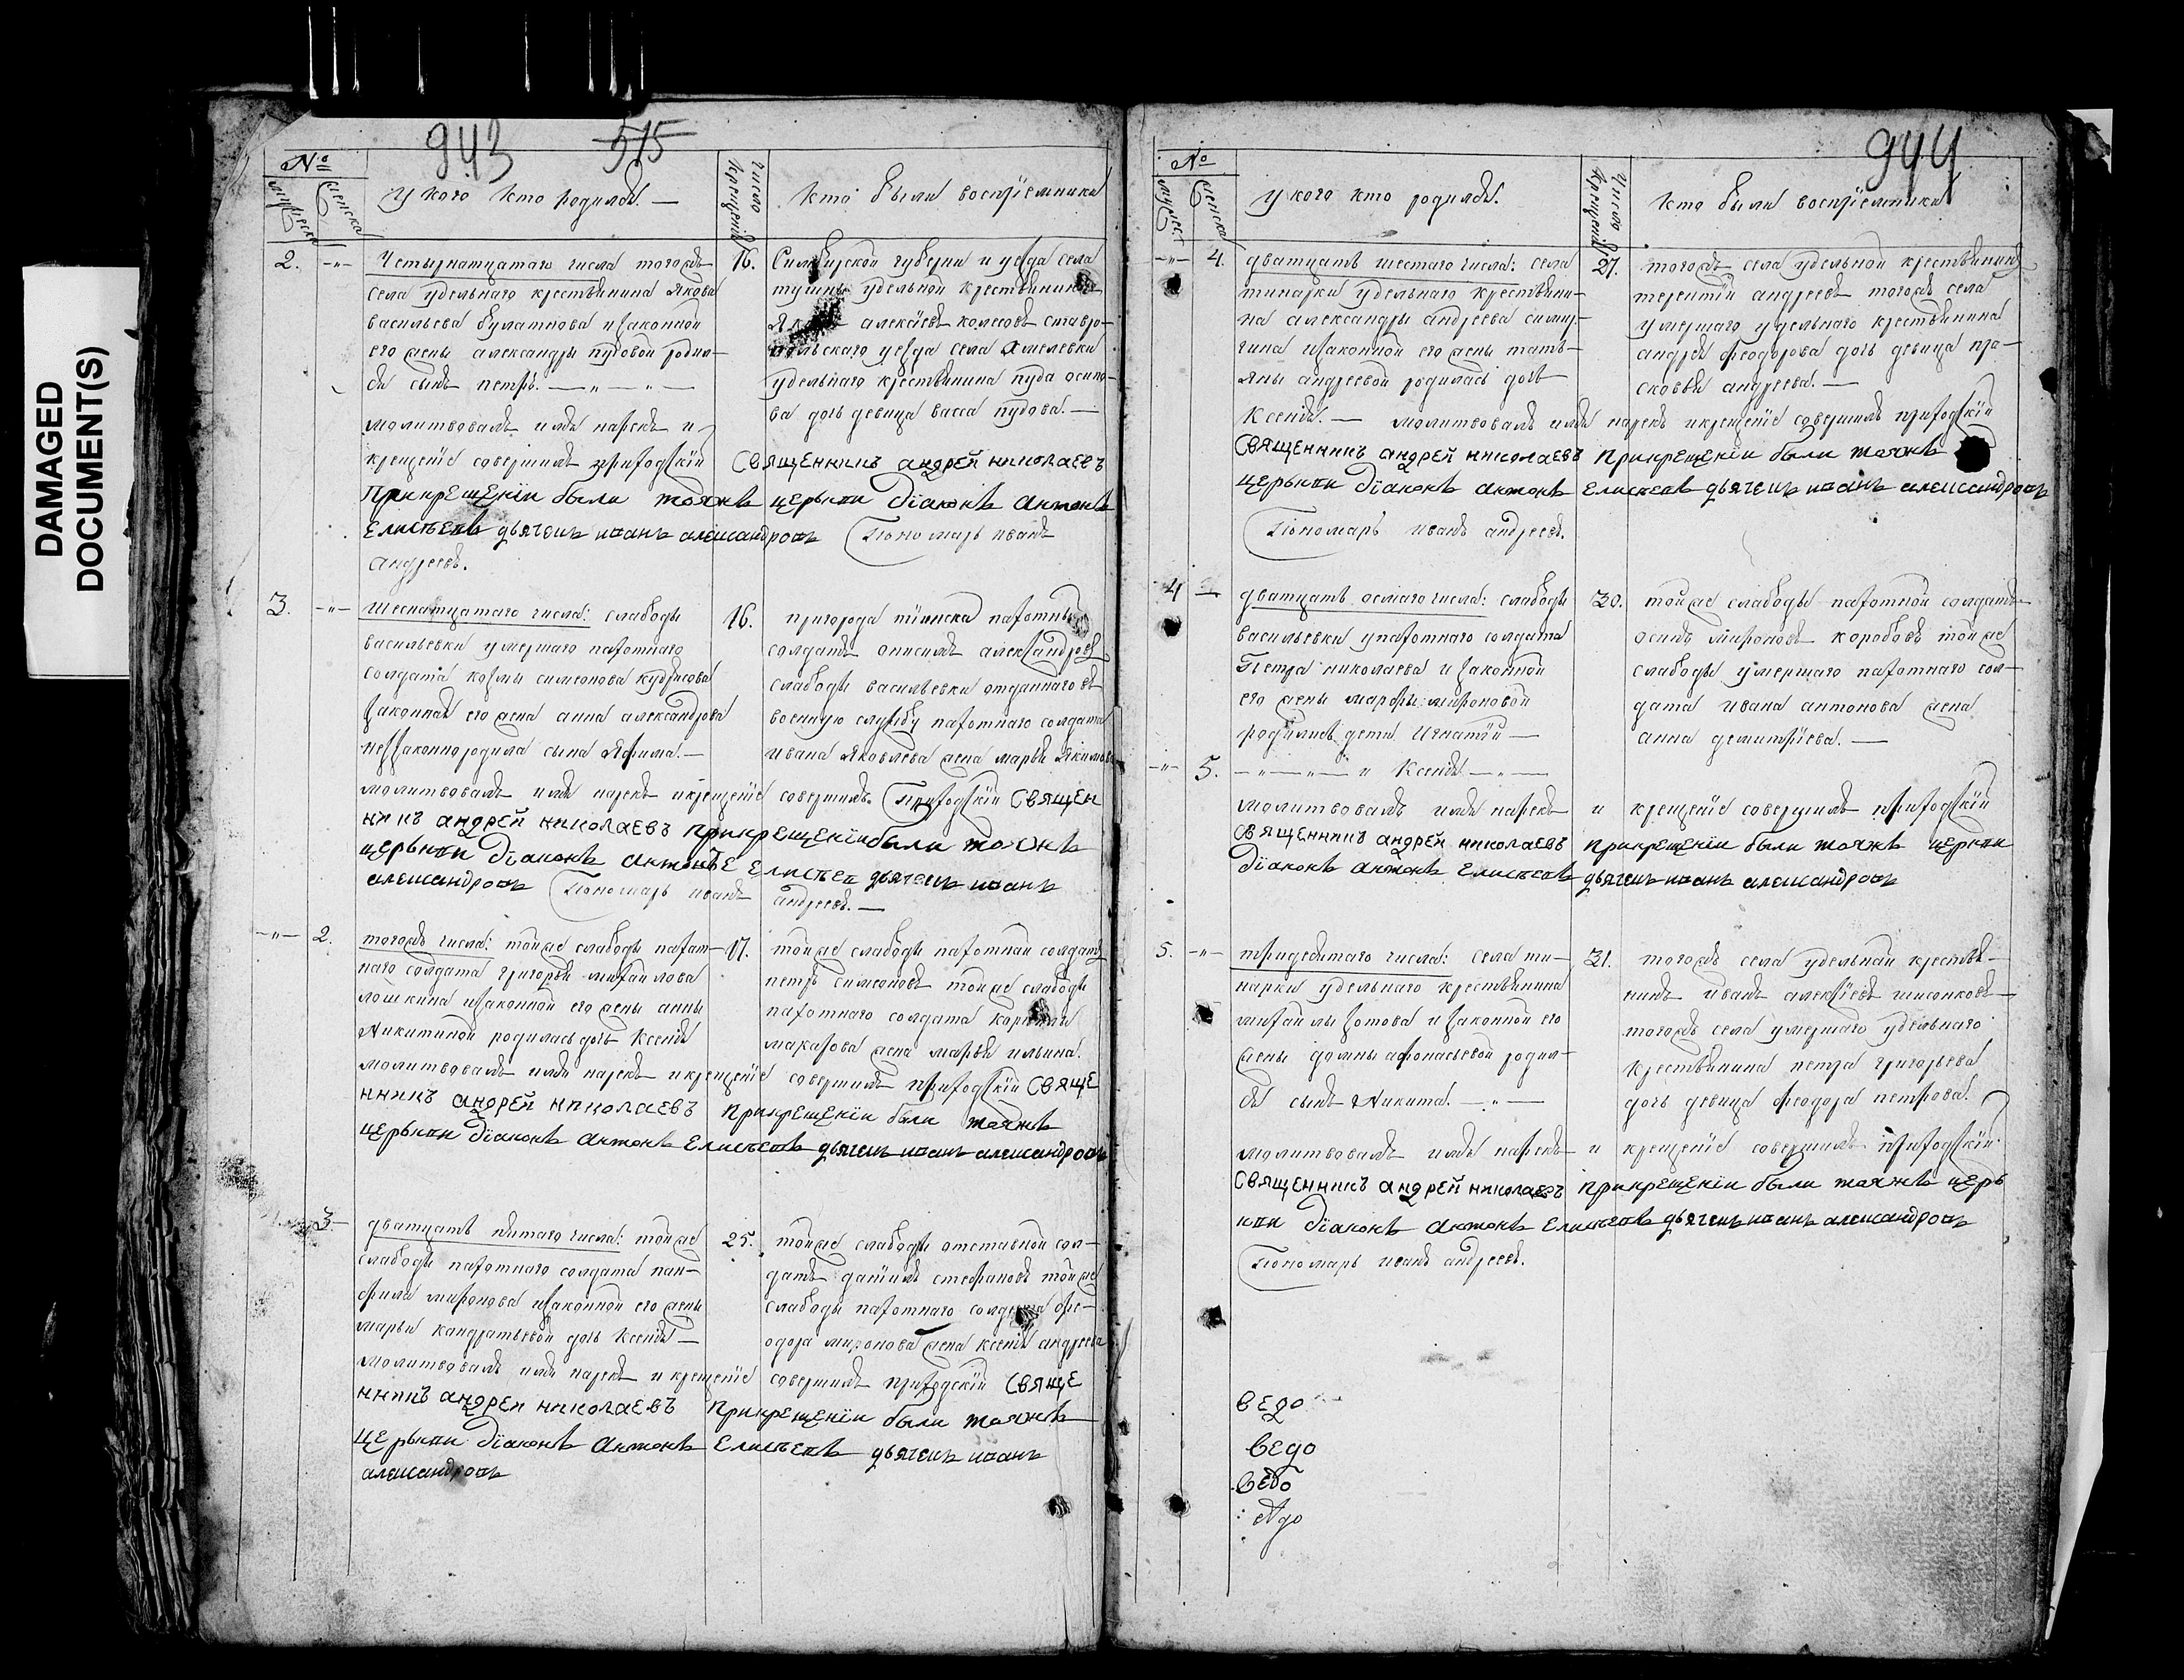 DAMAGED
DOCUMENT(S)
943 515
№
мужеска
женска
У кого кто родился.
Число крещенія
Кто были воспріемники
2.
Четырнатцатаго числа тогожъ
села удельнаго крестьянина Якова
васильева булатнова изаконной
его жены александры пудовой родил-
ся сынъ петръ.
молитвовалъ имя нарекъ и
крещеніе совершилъ приходскій священникъ андрей николаевъ
прикрещеніи были тояжъ церькви діаконъ антонъ
Елисеевъ дьячекъ иванъ александровъ Пономарь иванъ
андреевъ.
16.
Симбирской губерни и уезда села
тушны удельной крестьянинъ
алексѣевъ колесовъ ставро-
польскаго уезда села
удельнаго крестьянина пуда осипо-
ва дочь девица васса пудова.
3.
Шеснатцатаго числа: слабоды
васильевки умершаго пахотнаго
солдата козмы симеонова
законная его жена анна александрова
незаконно родила сына Якима.
молитвовалъ имя нарекъ икрещеніе совершилъ. Приходскій священ
никъ андрей николаевъ прикрещеніи были тояжъ
церькви діаконъ антонъ Елисеев дьячекъ иванъ
александровъ Пономарь иванъ андреевъ.
16.
пригорода тіинска пахотный
солдатъ анисимъ александровъ
слабоды васильевки отданнаго въ
военную службу пахотнаго солдата
ивана Яковлева жена марья Якимова
2.
тогожъ числа: тойже слабоды пахат-
наго солдата григорья михаилова
лошкина изаконной его жены анны
Никитиной родилась дочь Ксенія
молитвовалъ имя нарекъ икрещеніе совершилъ приходскій свяще
нникъ андрей николаевъ прикрещеніи были тояжъ
церькви діаконъ антонъ Елисеевъ дьячекъ иванъ александровъ
17.
тойже слабоды пахотной солдатъ
петръ симеоновъ тойже слабоды
пахотнаго солдата
макарова жена марья ильина.
3
дватцать пятаго числа: тойже
слабоды пахотнаго солдата пан-
фила миронова изаконной его жены
марьи кандратьевой дочь Ксенія
молитвовалъ имя нарекъ и крещеніе совершилъ приходскій свяще
нникъ андрей николаевъ прикрещеніи были тояжъ
церькви діаконъ антонъ Елисеевъ дьячекъ иванъ
александровъ
25.
тойже слабоды отставной сол-
датъ даніилъ стефановъ тойже
слабоды пахотнаго солдата фе-
одора миронова жена ксенія андреева
944
№
мужеск.
женска
У кого кто родился.
Число крещенія
Кто были воспріемники
4.
дватцать шестаго числа: села
тинарки удельнаго крестьяни-
на александры андреева
изаконной его жены тать-
яны андреевой родилась дочь
Ксенія. молитвовалъ имя нарекъ икрещеніе совершилъ приходскій
священникъ андрей николаевъ прикрещеніи были тояжъ
церькви діаконъ антонъ Елисеевъ дьячекъ иванъ александровъ
Пономарь иванъ андреевъ.
27.
тогожъ села удельной крестьянинъ
терентій андреевъ тогожъ села
умершаго удельнаго крестьянина
андрея феодорова дочь девица пра-
сковья андреева.
4
дватцать осмаго числа: слабоды
васильевки упахотнаго солдата
Петра николаева и законной
его жены марфы мироновой
родились дети Игнатій
5.
и Ксенія
молитвовалъ имя нарекъ и крещеніе совершилъ приходскій
священникъ андрей николаевъ прикрещеніи были тояжъ церкви
діаконъ антонъ Елисеевъ дьячекъ иванъ александровъ
30.
тойже слабоды пахотной солдатъ
осипъ мироновъ коробовъ тойже
слабоды умершаго пахотнаго сол-
дата ивана антонова жена
анна демитріева.
5.
тридевятаго числа: села ти-
нарки удельнаго крестьянина
михайлы зотова и законной его
жены домны афонасьевой родил-
ся сынъ Никита.
молитвовалъ имя нарекъ и крещеніе совершилъ приходскій
священникъ андрей николаевъ прикрещеніи были тояжъ церь
кви діаконъ антонъ Елисеевъ дьячекъ иванъ александровъ
Пономарь иванъ андреевъ.
31.
тогожъ села удельнай крестья-
нинъ иванъ алексѣевъ
тогожъ села умершаго удельнаго
крестьянина петра григорьева
дочь девица феодора петрова.
ведо
ведо
ведо